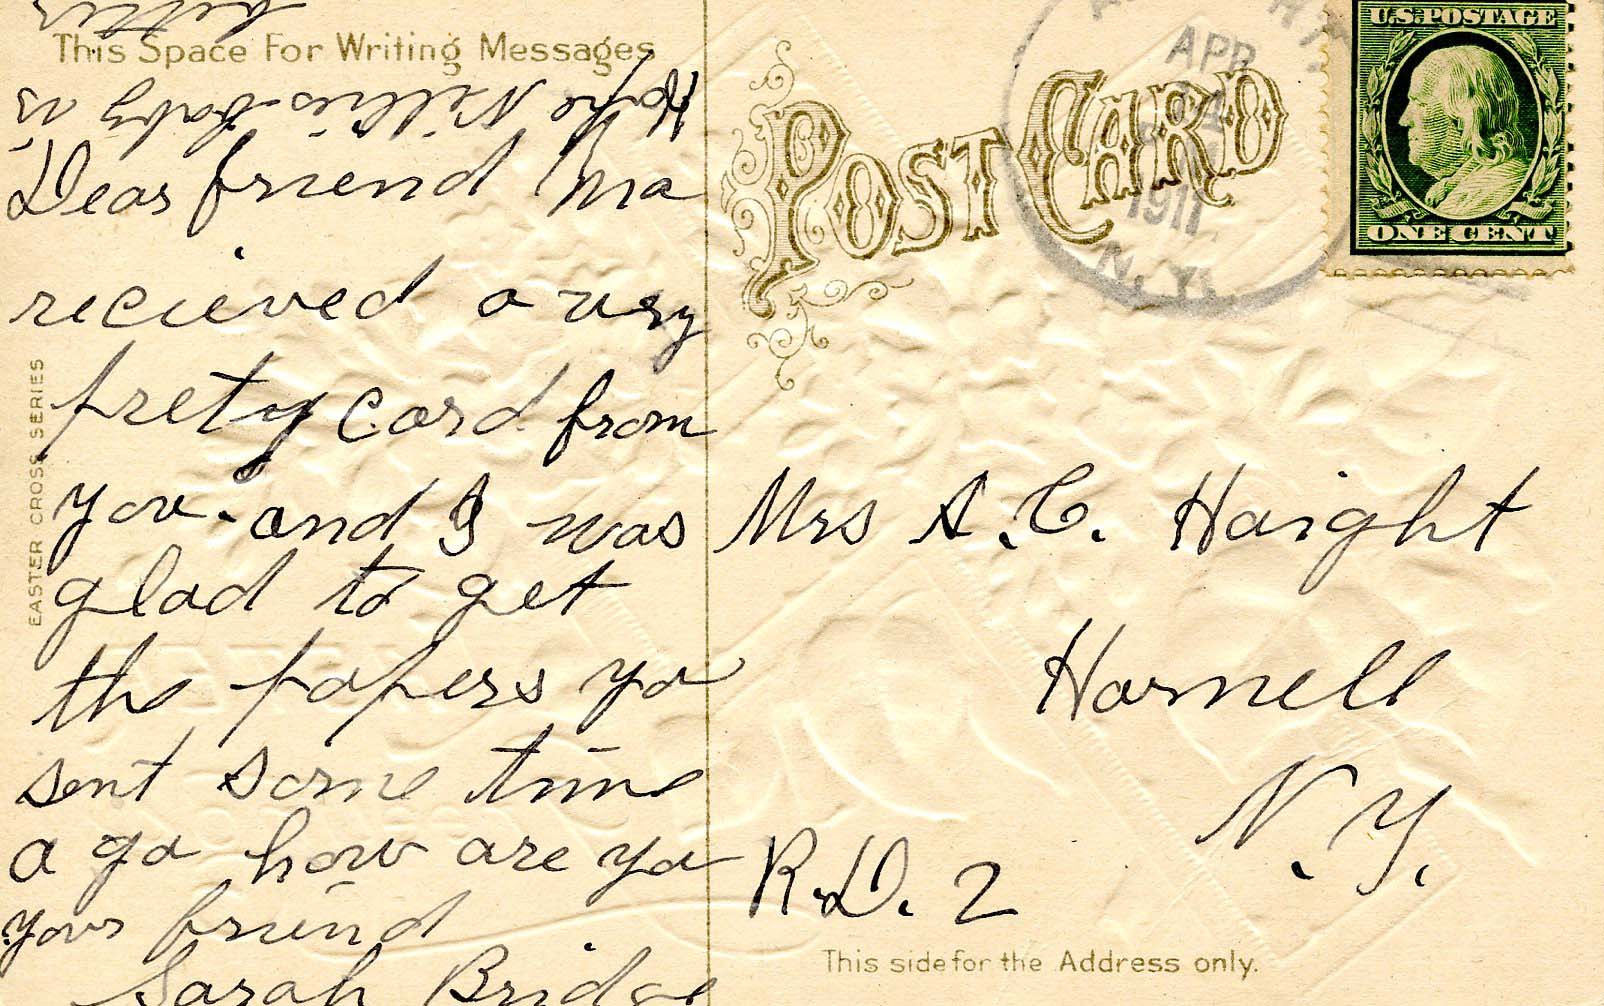 This Space For Writing Messages
Dear friend Ma
recieved a very
prety card from
you. and I was
glad to get
the papers yo
sent some time
a go how are yo
your friend
Sarah Bridge
Hope Nellies baby is
better
EASTER CROSS SERIES
POST CARD
APR
1911
N.Y.
U.S. POSTAGE
ONE CENT
Mrs A. C. Haight
Hornell
N. Y.
R.D. 2
This side for the Address only.